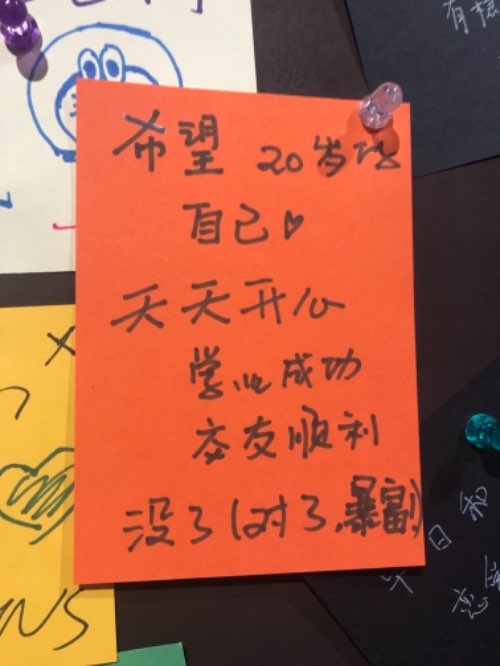 希望 20岁的
自己♡
天天开心
学业成功
交友顺利
没了(对了,暴富)
有穗
日和
NS